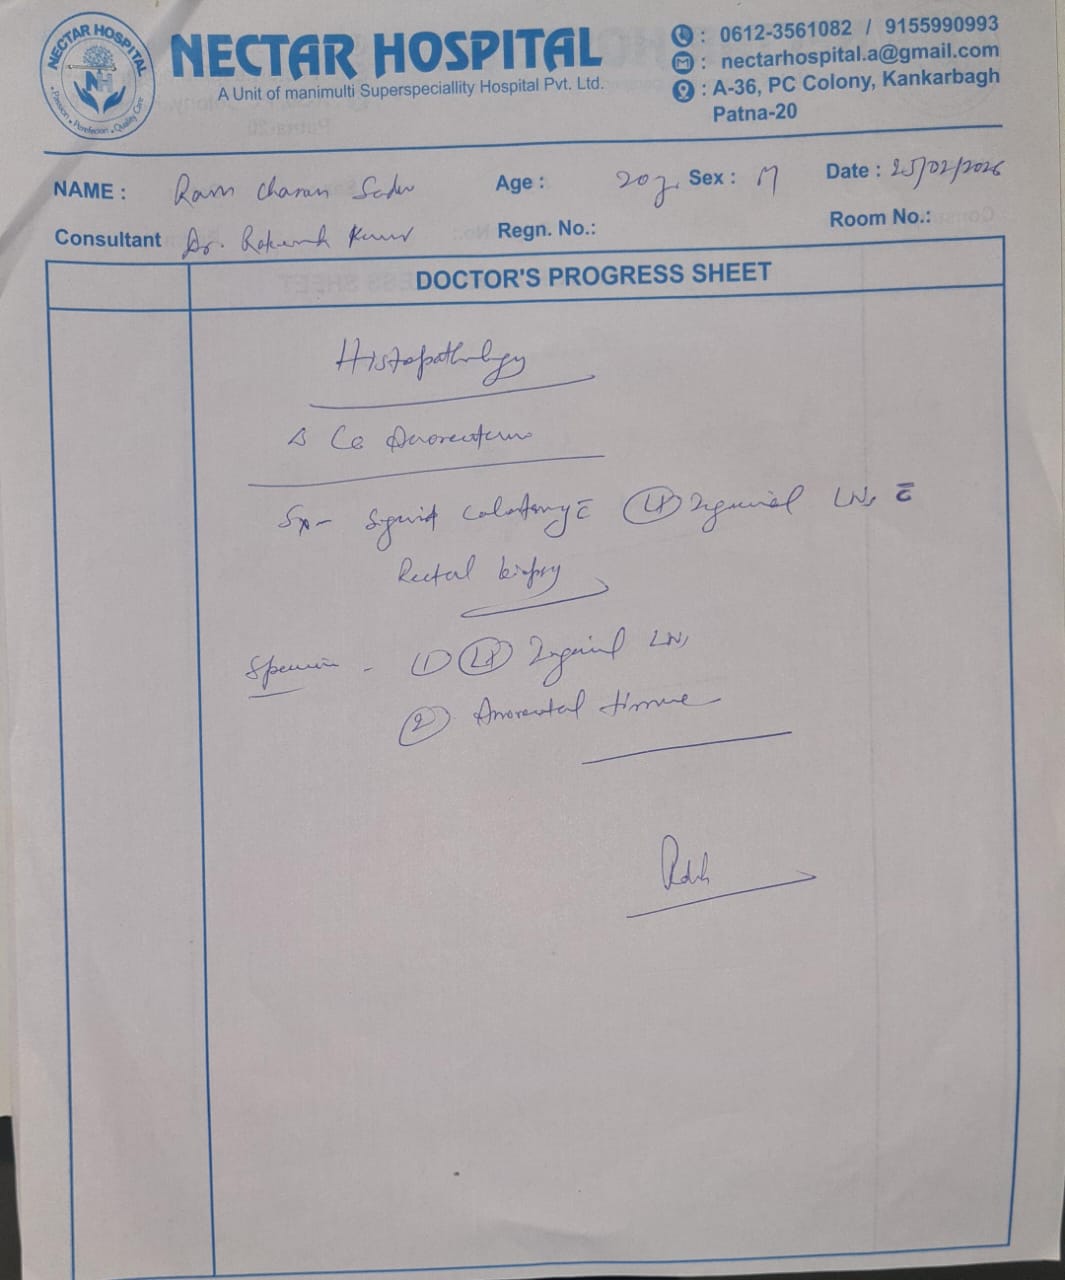 NECTAR HOSPITAL
Passion • Perefecion • Quality Care
NH
NECTAR HOSPITAL
A Unit of manimulti Superspeciallity Hospital Pvt. Ltd.
: 0612-3561082 / 9155990993
: nectarhospital.a@gmail.com
: A-36, PC Colony, Kankarbagh
Patna-20
NAME : Ram Charan Age : 20 y. Sex : M Date : 25/02/2026
Consultant Dr. Rakesh Kumar Regn. No.: Room No.:
DOCTOR'S PROGRESS SHEET
Histopathology
Δ Ca Anorectum
Sx - Sigmoid colostomy c̄ (Lt) Inguinal LN, c̄
Rectal biopsy
Specimen - (1) (Lt) Inguinal LN,
(2) Anorectal tissue